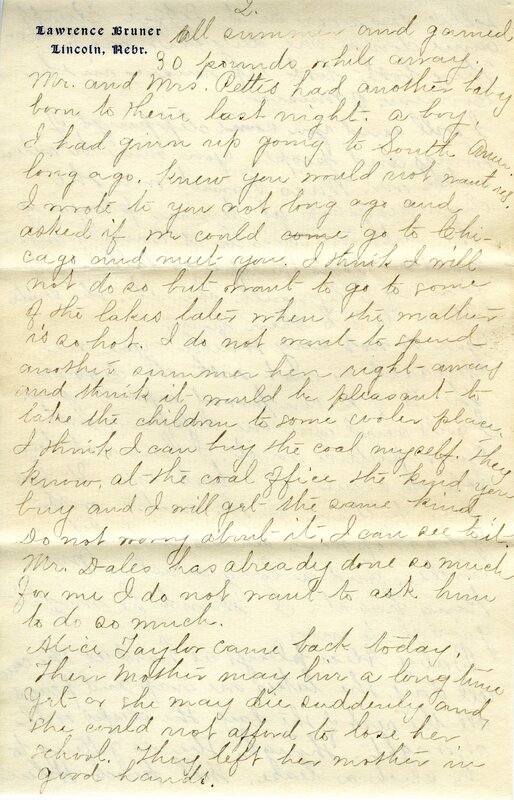 2.
Lawrence Bruner
Lincoln, Nebr.
all summer and gained
30 pounds while away.
Mr. and Mrs. Pettis had another baby
born to them last night. a boy.
I had given up going to South Amer.
long ago. knew you would not want us.
I wrote to you not long ago and
asked if we could come go to Chi-
cago and meet you. I think I will
not do so but want to go to some
of the lakes later when the weather
is so hot. I do not want to spend
another summer here right away
and think it would be pleasant to
take the children to some cooler place.
I think I can buy the coal myself. They
know, at the coal office the kind you
buy and I will get the same kind
Do not worry about it, I can see to it.
Mr. Dales has already done so much
for me I do not want to ask him
to do so much.
Alice Taylor came back today.
Their Mother may live a long time
yet or she may die suddenly and
she could not afford to lose her
school. They left her mother in
good hands.